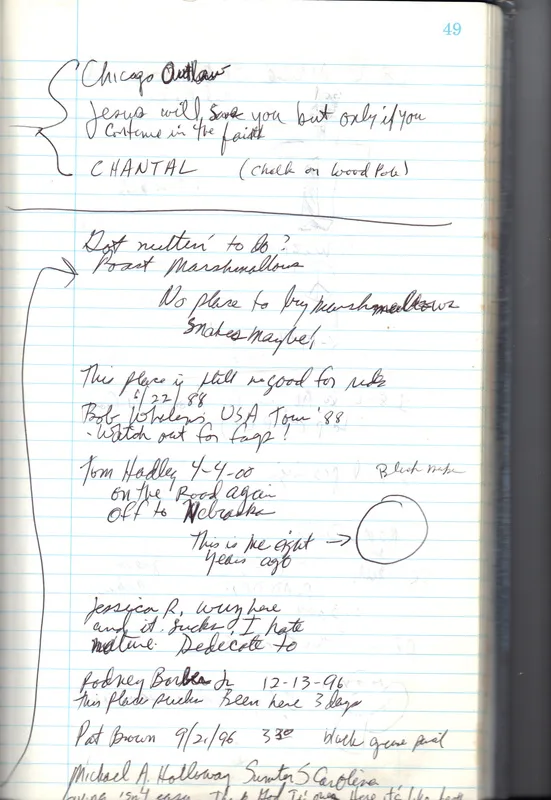 49
Chicago Outlaw
Jesus will save you but only if you
Continue in the faith
CHANTAL (Chalk on Wood Pole)
Got nuttin' to do?
Roast Marshmallows
No place to buy marshmallows
Snakes maybe!
This place is still no good for rides
6/22/88
Bob USA Tour '88
- Watch out for fags!
Tom Hadley 4-4-00
on the Road again
off to Nebraska
This is me eight
years ago
Jessica R. wuz here
and it sucks! I hate
nature. Dedicate to
Rodney Barber Jr 12-13-96
This place sucks Been here 3 days
Pat Brown 9/21/96 3 30 black
Michael A. Holloway Sumter S Carolina
isn't easy